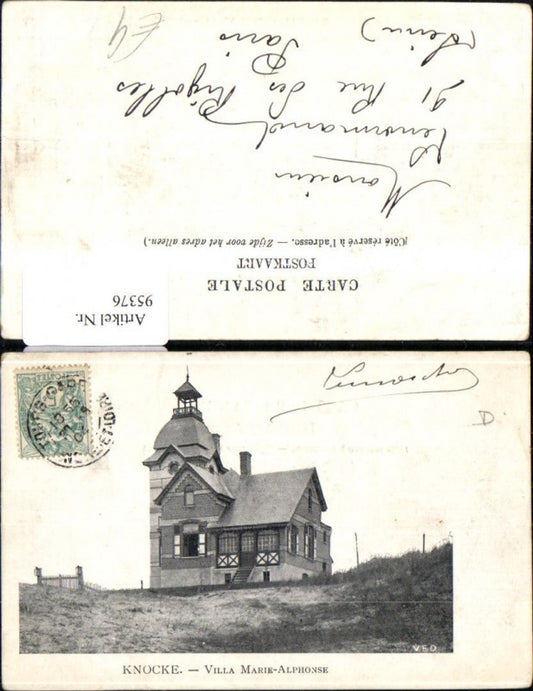 CARTE POSTALE
POSTKAART
(Côté réservé à l'adresse. — Zijde voor het adres alleen.)
Monsieur
Lenormand
91, Rue des Rigolles
Paris
(Seine)
Artikel Nr.
95376
Lenormand
D
POSTES
KNOCKE. — VILLA MARIE-ALPHONSE
V E D